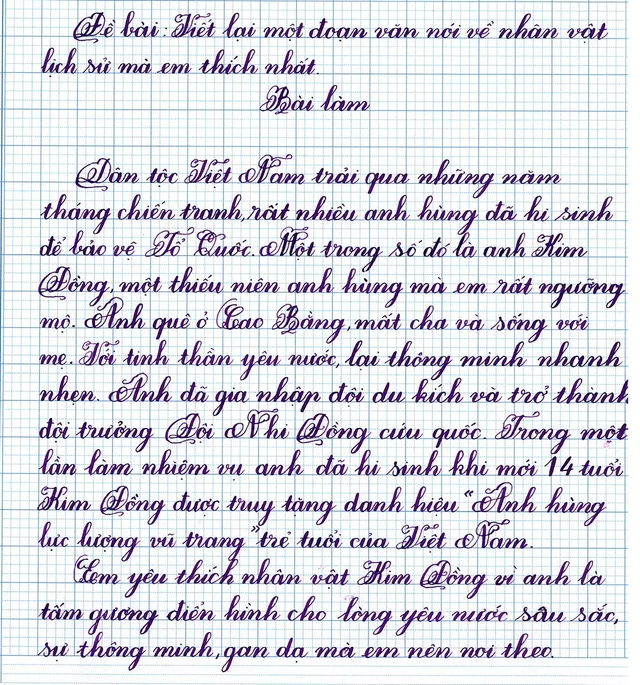 Đề bài: Viết lại một đoạn văn nói về nhân vật
lịch sử mà em thích nhất.
Bài làm
Dân tộc Việt Nam trải qua những năm
tháng chiến tranh, rất nhiều anh hùng đã hi sinh
để bảo vệ Tổ Quốc. Một trong số đó là anh Kim
Đồng, một thiếu niên anh hùng mà em rất ngưỡng
mộ. Anh quê ở Cao Bằng, mất cha và sống với
mẹ. Với tinh thần yêu nước, lại thông minh nhanh
nhẹn. Anh đã gia nhập đội du kích và trở thành
đội trưởng Đội Nhi Đồng cứu quốc. Trong một
lần làm nhiệm vụ anh đã hi sinh khi mới 14 tuổi
Kim Đồng được truy tặng danh hiệu "Anh hùng
lực lượng vũ trang" trẻ tuổi của Việt Nam.
Em yêu thích nhân vật Kim Đồng vì anh là
tấm gương điển hình cho lòng yêu nước sâu sắc,
sự thông minh, gan dạ mà em nên noi theo.